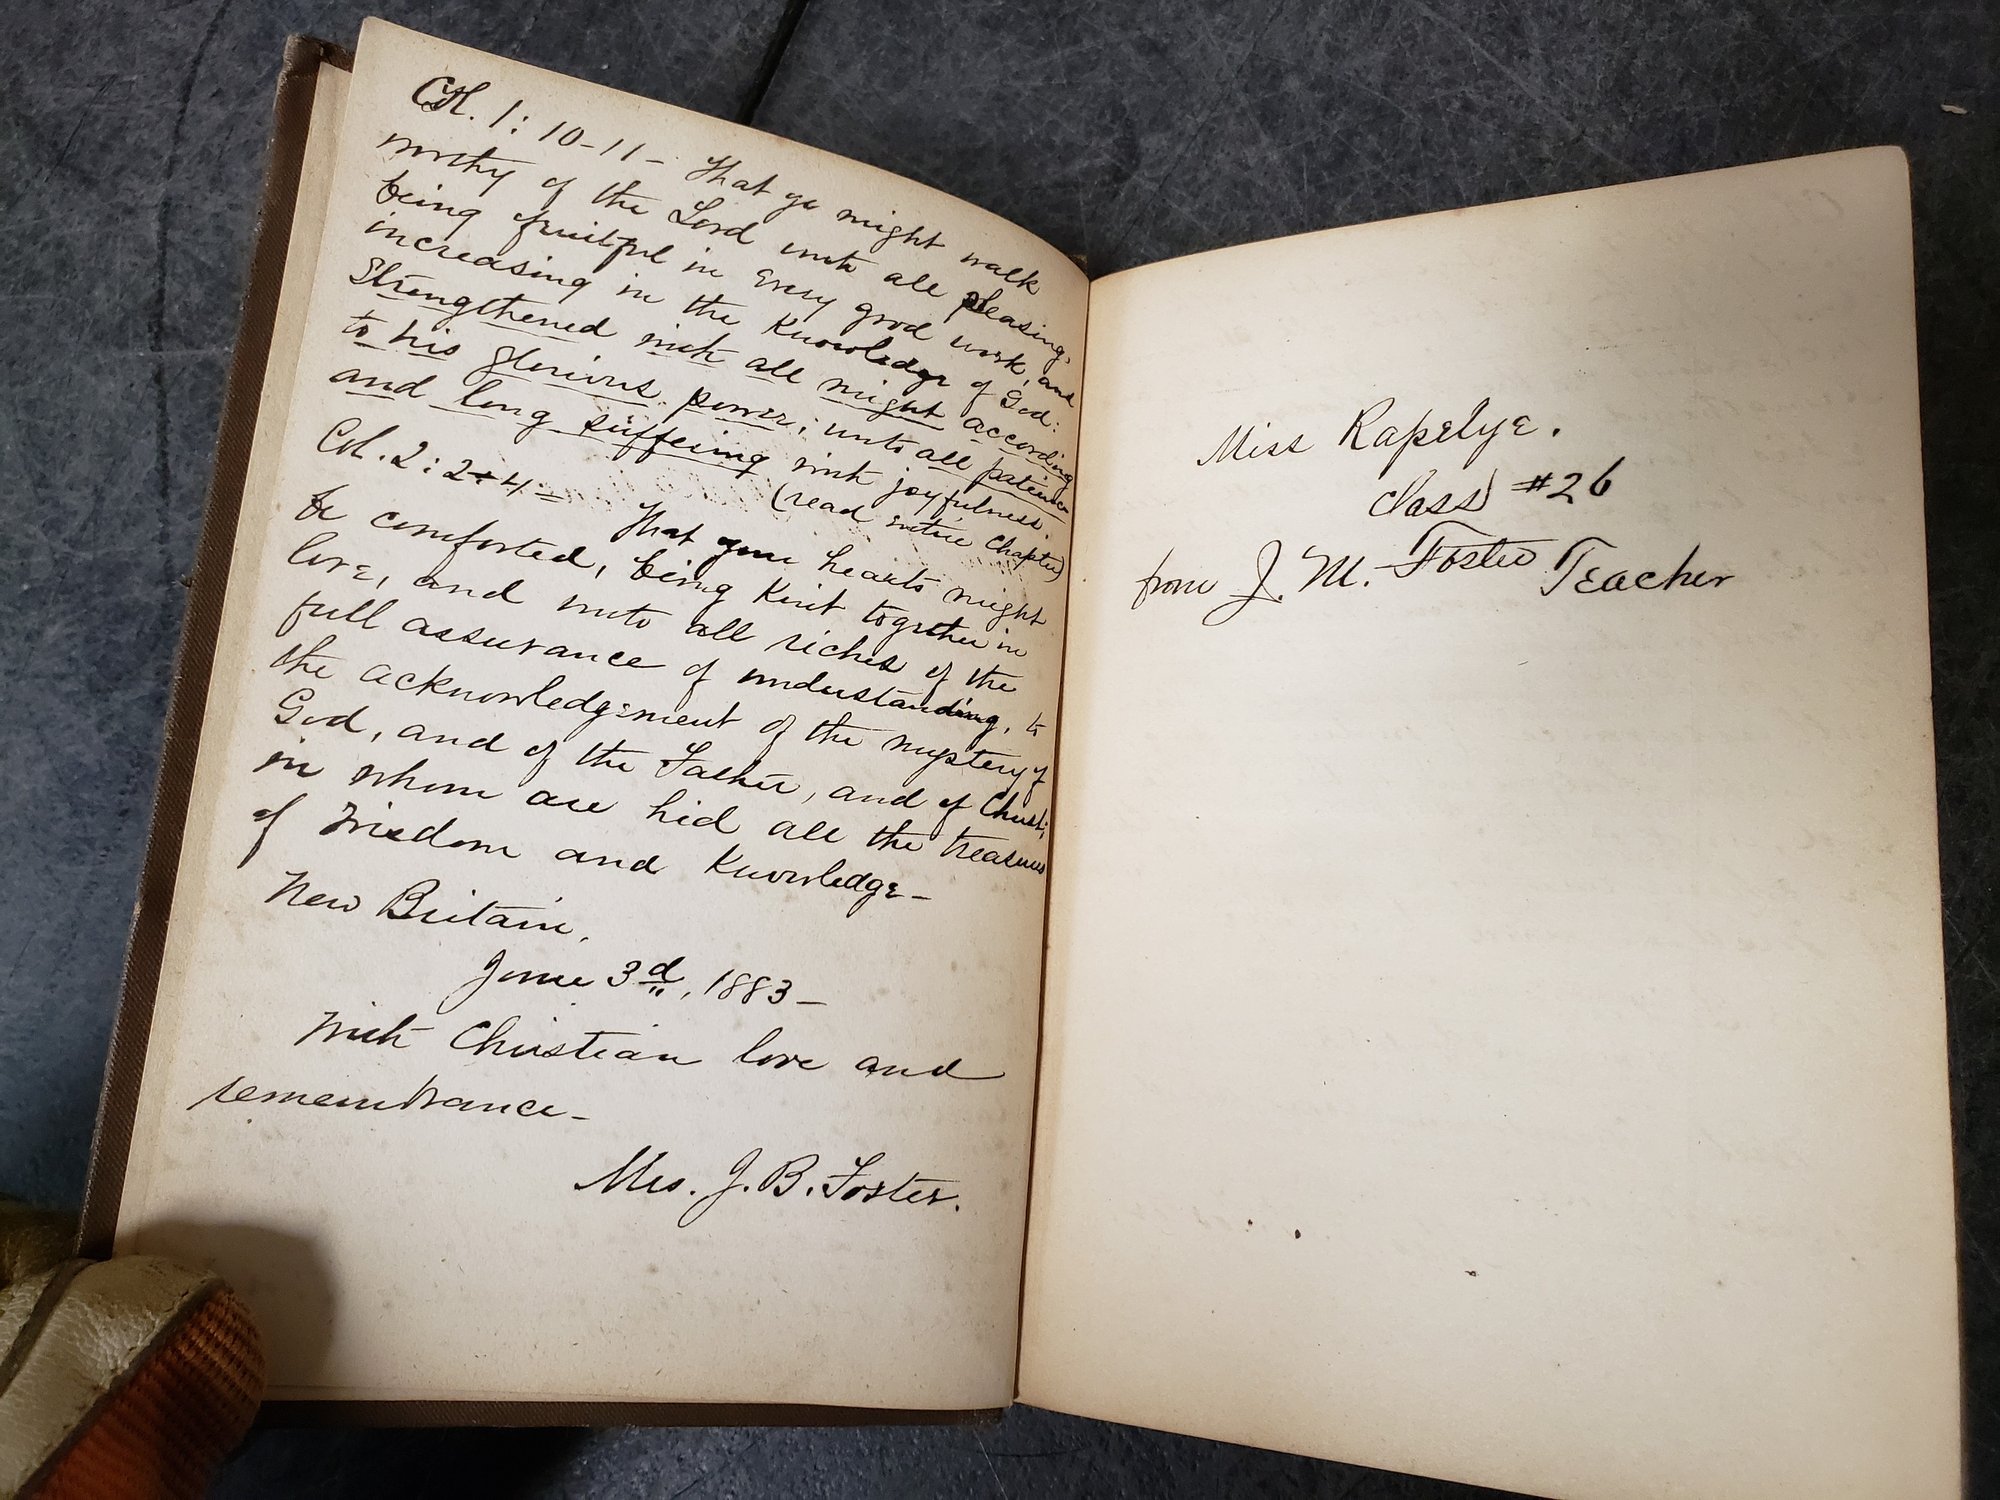 Col. 1: 10-11- That ye might walk
worthy of the Lord unto all pleasing,
being fruitful in every good work, and
increasing in the Knowledge of God:
Strengthened with all might according
to his glorious power, unto all patience
and long suffering with joyfulness
(read entire Chapter)
Col. 2: 2+4- That your hearts might
be comforted, being Knit together in
love, and unto all riches of the
full assurance of understanding, to
the acknowledgement of the mystery of
God, and of the Father, and of Christ;
in whom are hid all the treasures
of Wisdom and Knowledge-
New Britain,
June 3d, 1883-
With Christian love and
remembrance-
Mrs. J. B. Foster.
Miss Rapelye.
Class #26
from J. M. Foster Teacher